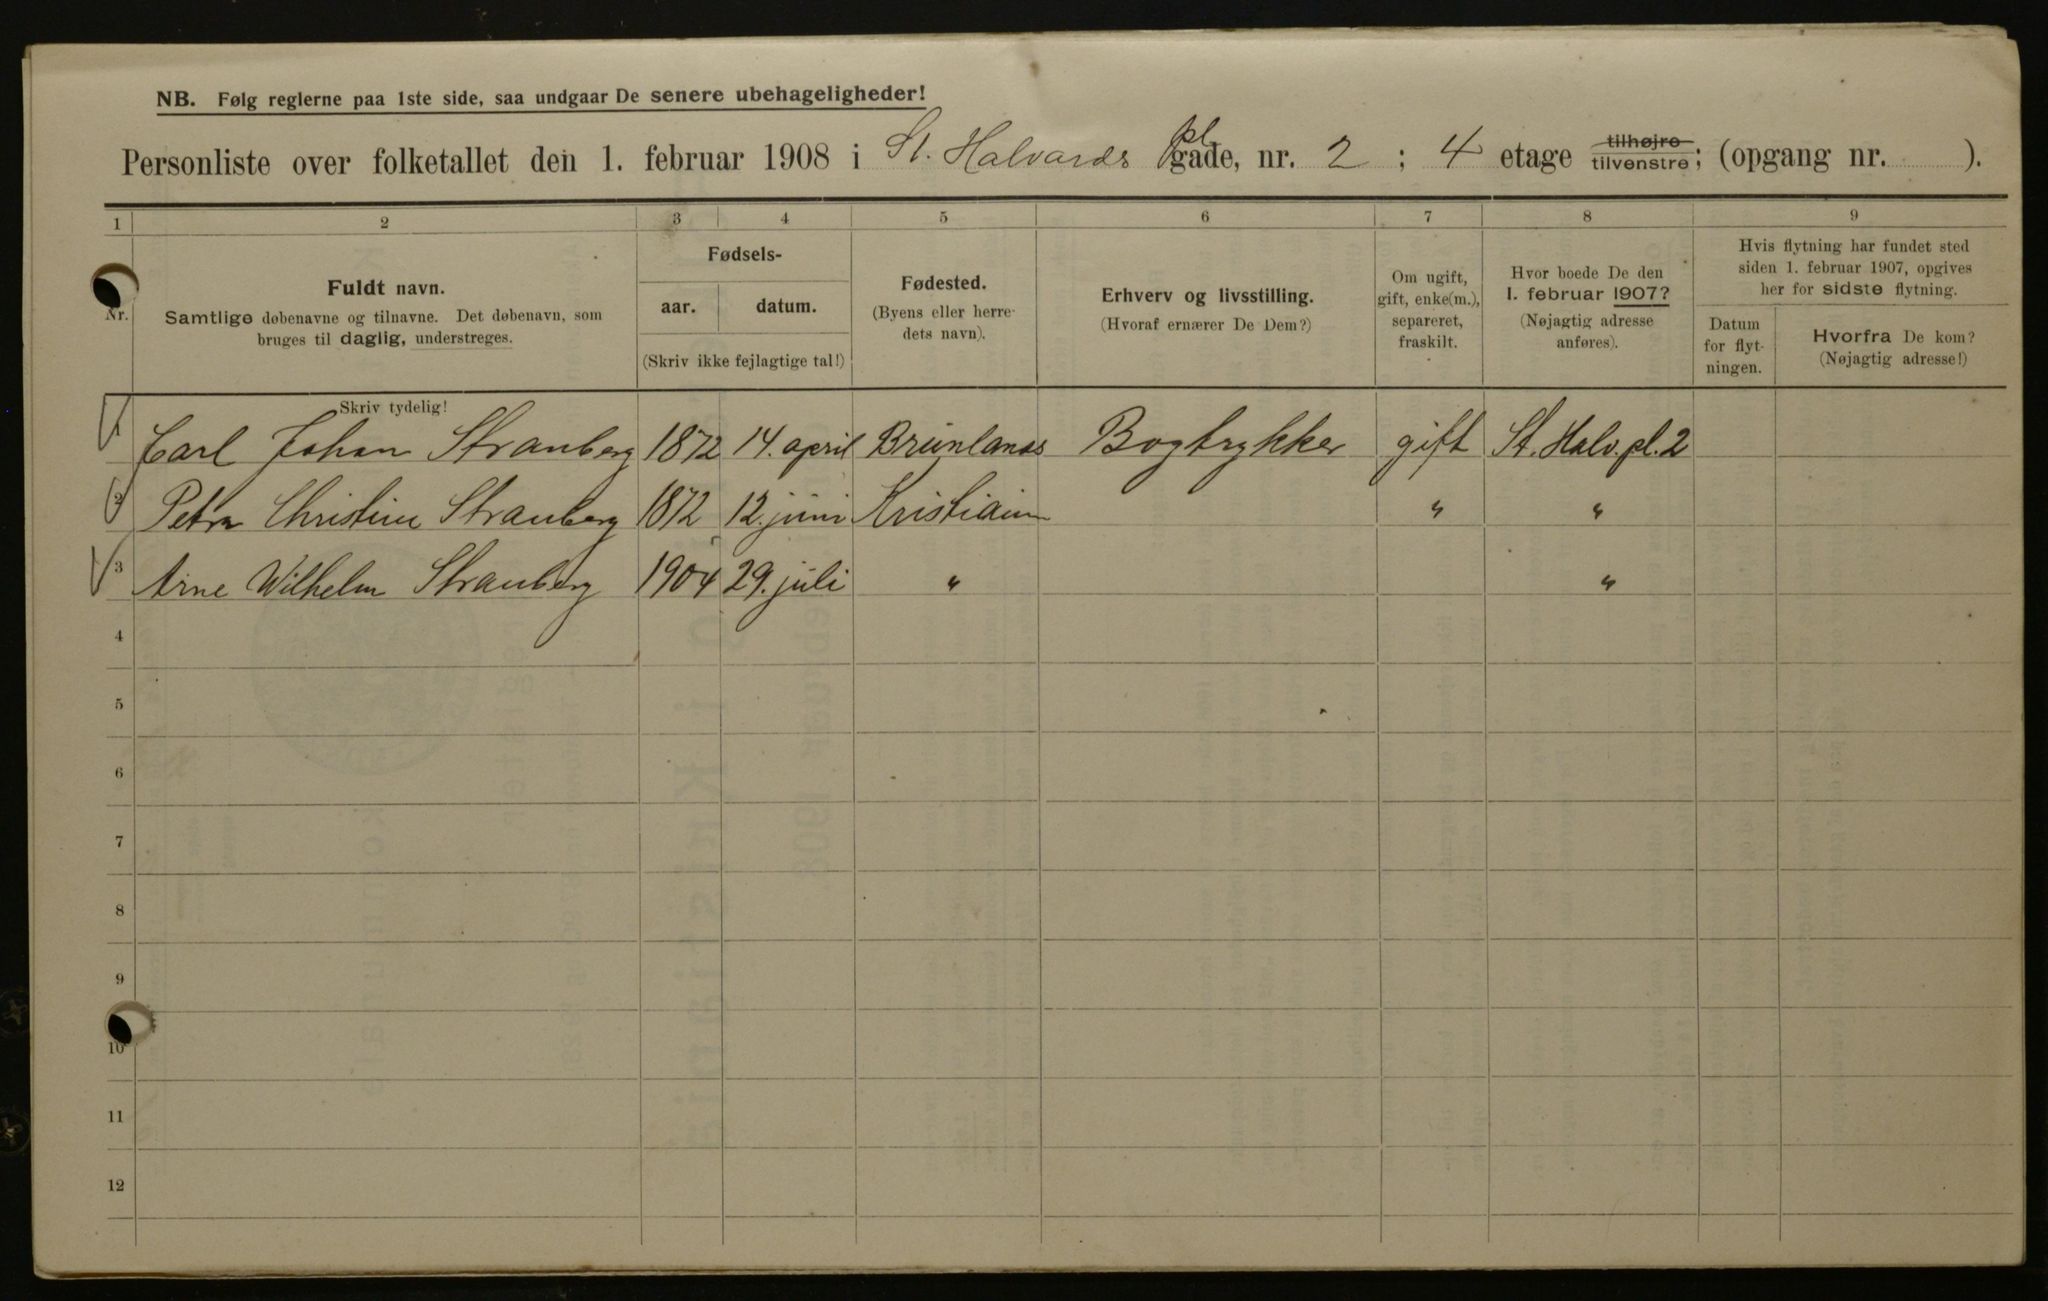 NB. Følg reglerne paa 1ste side, saa undgaar De senere ubehageligheder!
Personliste over folketallet den 1. februar 1908 i St. Halvards pl. gade, nr. 2 ; 4 etage tilhøjre tilvenstre; (opgang nr. ).
1 2 3 4 5 6 7 8 9
Nr.
Fuldt navn.
Samtlige døbenavne og tilnavne. Det døbenavn, som
bruges til daglig, understreges.
Skriv tydelig!
Fødsels-
aar. datum.
(Skriv ikke fejlagtige tal!)
Fødested.
(Byens eller herre-
dets navn).
Erhverv og livsstilling.
(Hvoraf ernærer De Dem?)
Om ugift,
gift, enke(m.),
separeret,
fraskilt.
Hvor boede De den
1. februar 1907?
(Nøjagtig adresse
anføres).
Hvis flytning har fundet sted
siden 1. februar 1907, opgives
her for sidste flytning.
Datum
for flyt-
ningen.
Hvorfra De kom?
(Nøjagtig adresse!)
1 Carl Johan Stranberg 1872 14. april Brunlanas Bogtrykker gift St. Halv. pl. 2
2 Petra Christine Stranberg 1872 12. juni Kristiania " "
3 Arne Wilhelm Stranberg 1904 29. juli " "
4
5
6
7
8
9
10
11
12